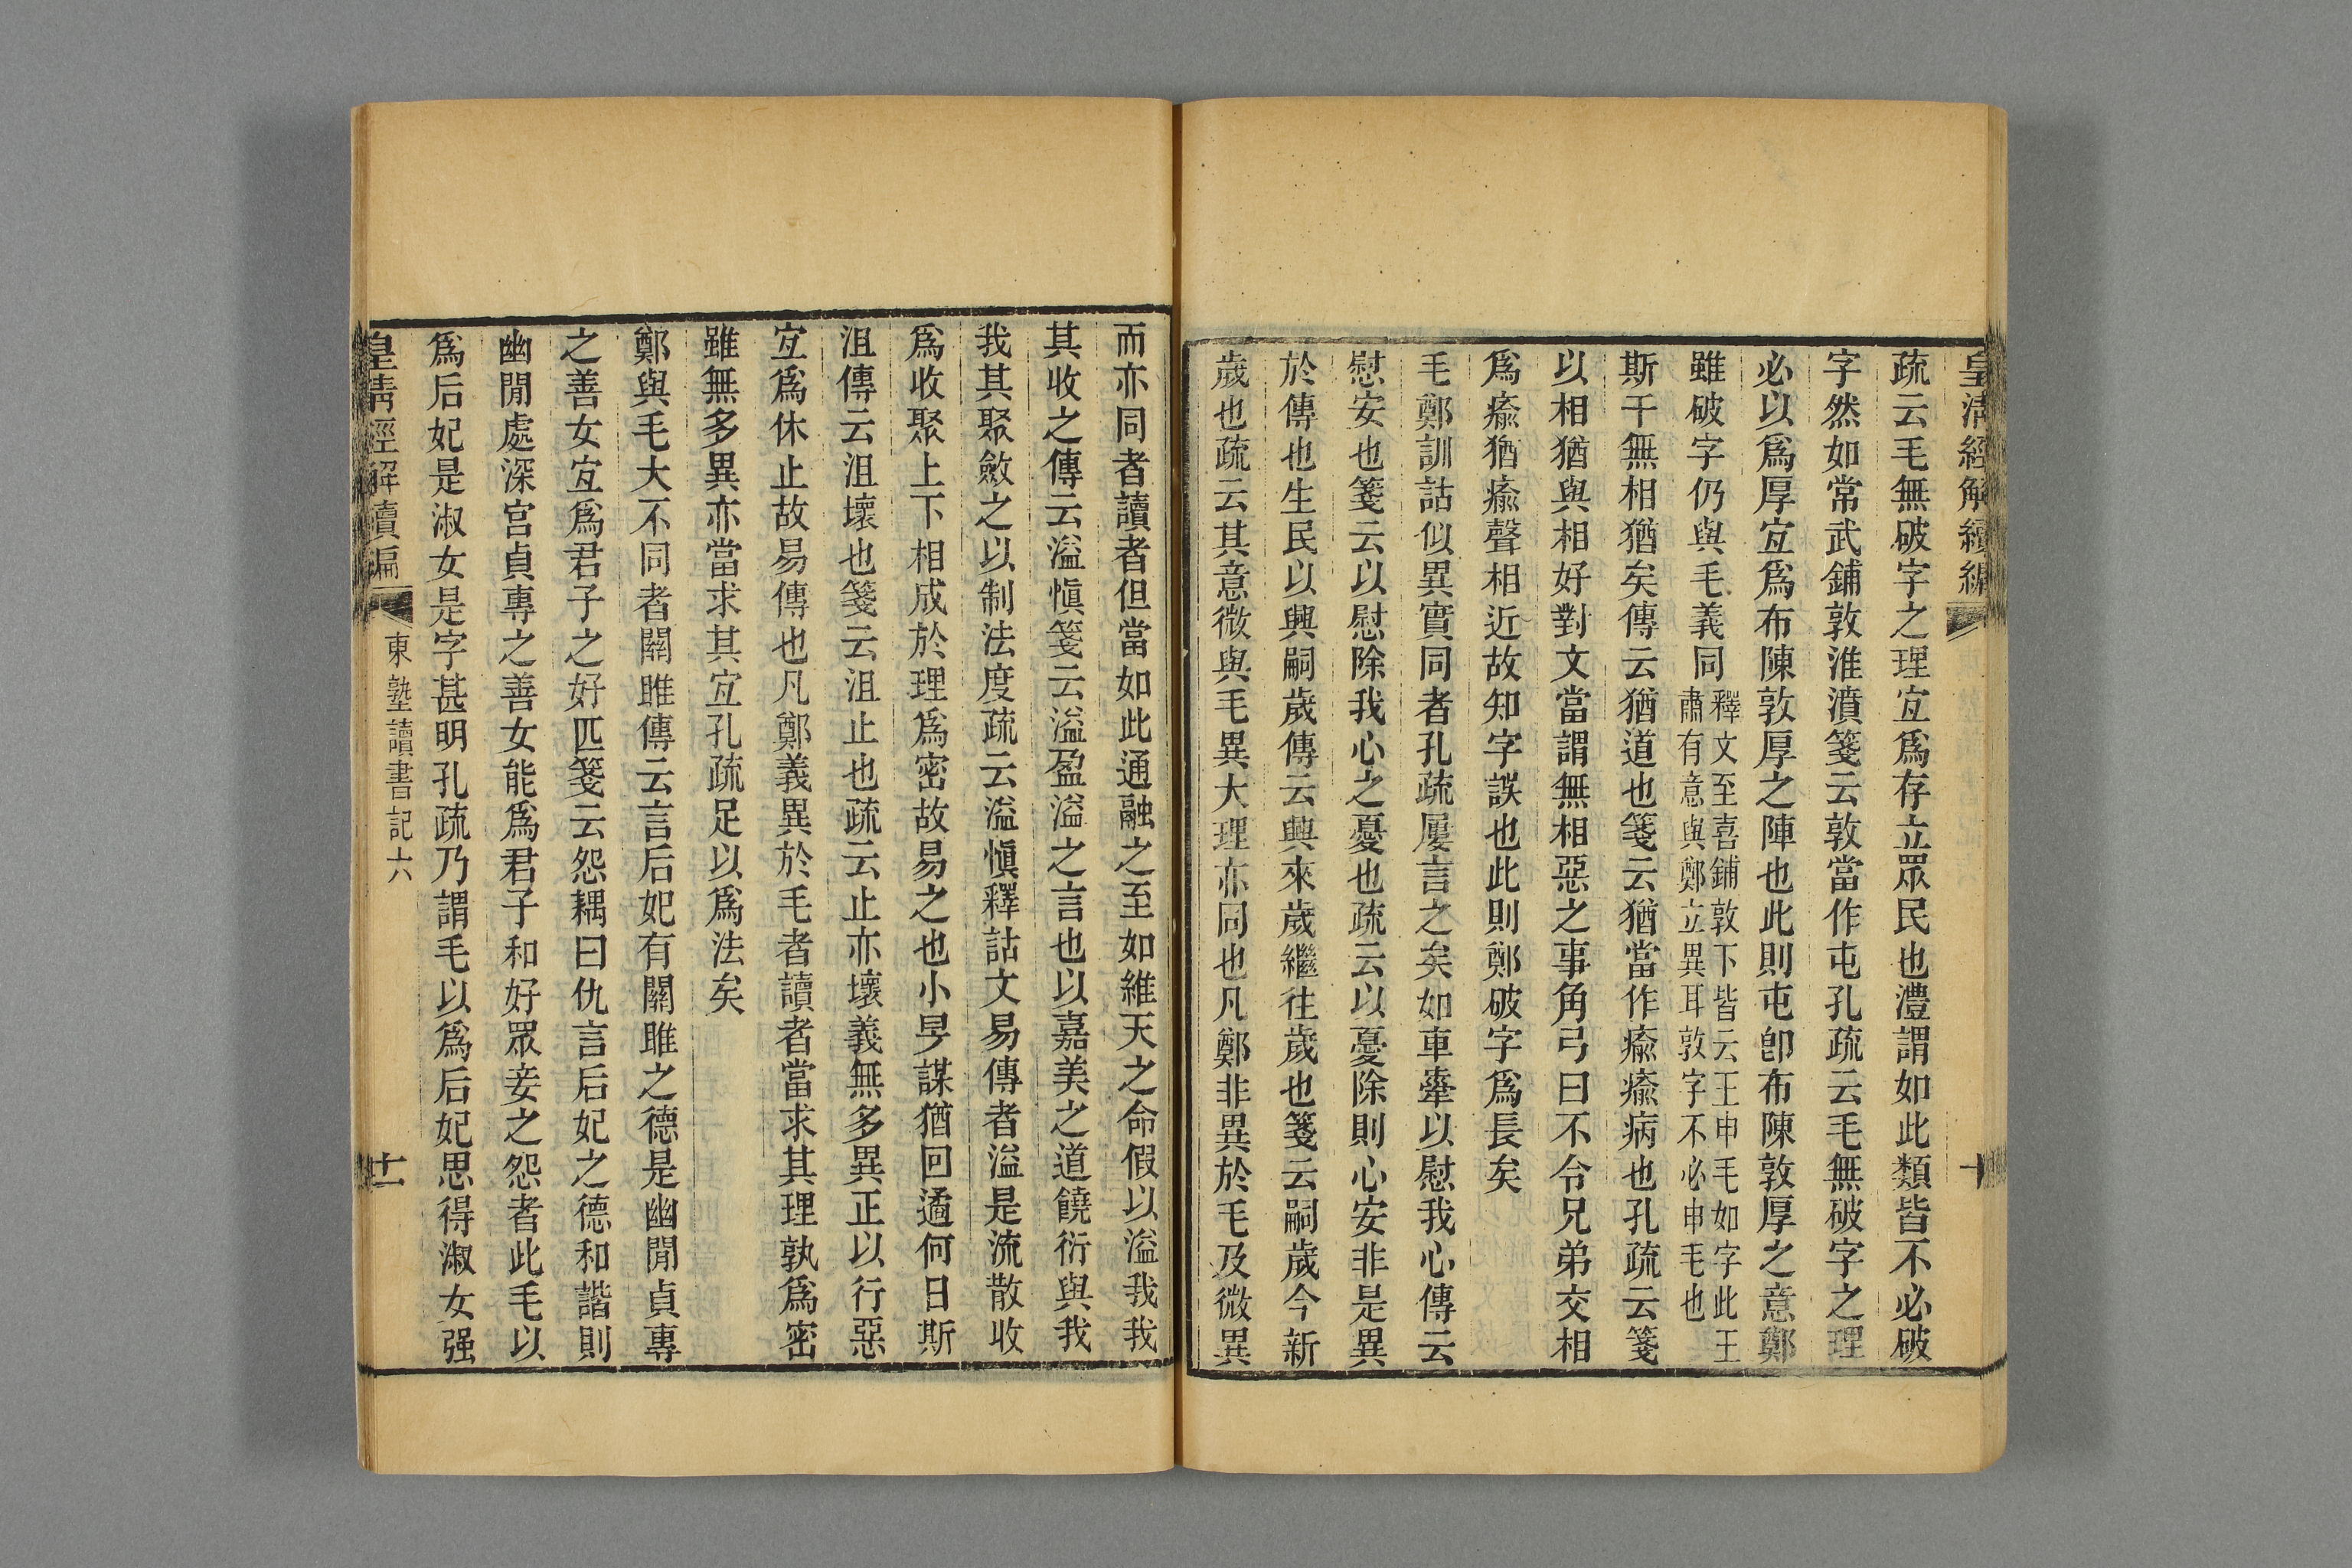 皇清經解續編
十
疏云毛無破字之理宐爲存立眾民也澧謂如此類皆不必破
字然如常武鋪敦淮濆箋云敦當作屯孔疏云毛無破字之理
必以爲厚宐爲布陳敦厚之陣也此則屯卽布陳敦厚之意鄭
雖破字仍與毛義同釋文至喜鋪敦下皆云王申毛如字此王
肅有意與鄭立異耳敦字不必申毛也
斯干無相猶矣傳云猶道也箋云猶當作瘉瘉病也孔疏云箋
以相猶與相好對文當謂無相惡之事角弓曰不令兄弟交相
爲瘉猶瘉聲相近故知字誤也此則鄭破字爲長矣
毛鄭訓詁似異實同者孔疏屢言之矣如車舝以慰我心傳云
慰安也箋云以慰除我心之憂也疏云以憂除則心安非是異
於傳也生民以興嗣歲傳云興來歲繼往歲也箋云嗣歲今新
歲也疏云其意微與毛異大理亦同也凡鄭非異於毛及微異
而亦同者讀者但當如此通融之至如維天之命假以溢我我
其收之傳云溢愼箋云溢盈溢之言也以嘉美之道饒衍與我
我其聚斂之以制法度疏云溢愼釋詁文易傳者溢是流散收
爲收聚上下相成於理爲密故易之也小旻謀猶回遹何日斯
沮傳云沮壞也箋云沮止也疏云止亦壞義無多異正以行惡
宐爲休止故易傳也凡鄭義異於毛者讀者當求其理孰爲密
雖無多異亦當求其宐孔疏足以爲法矣
鄭與毛大不同者關雎傳云言后妃有關雎之德是幽閒貞專
之善女宐爲君子之好匹箋云怨耦曰仇言后妃之德和諧則
幽閒處深宮貞專之善女能爲君子和好眾妾之怨者此毛以
爲后妃是淑女是字甚明孔疏乃謂毛以爲后妃思得淑女强
皇清經解續編
東塾讀書記六
十一